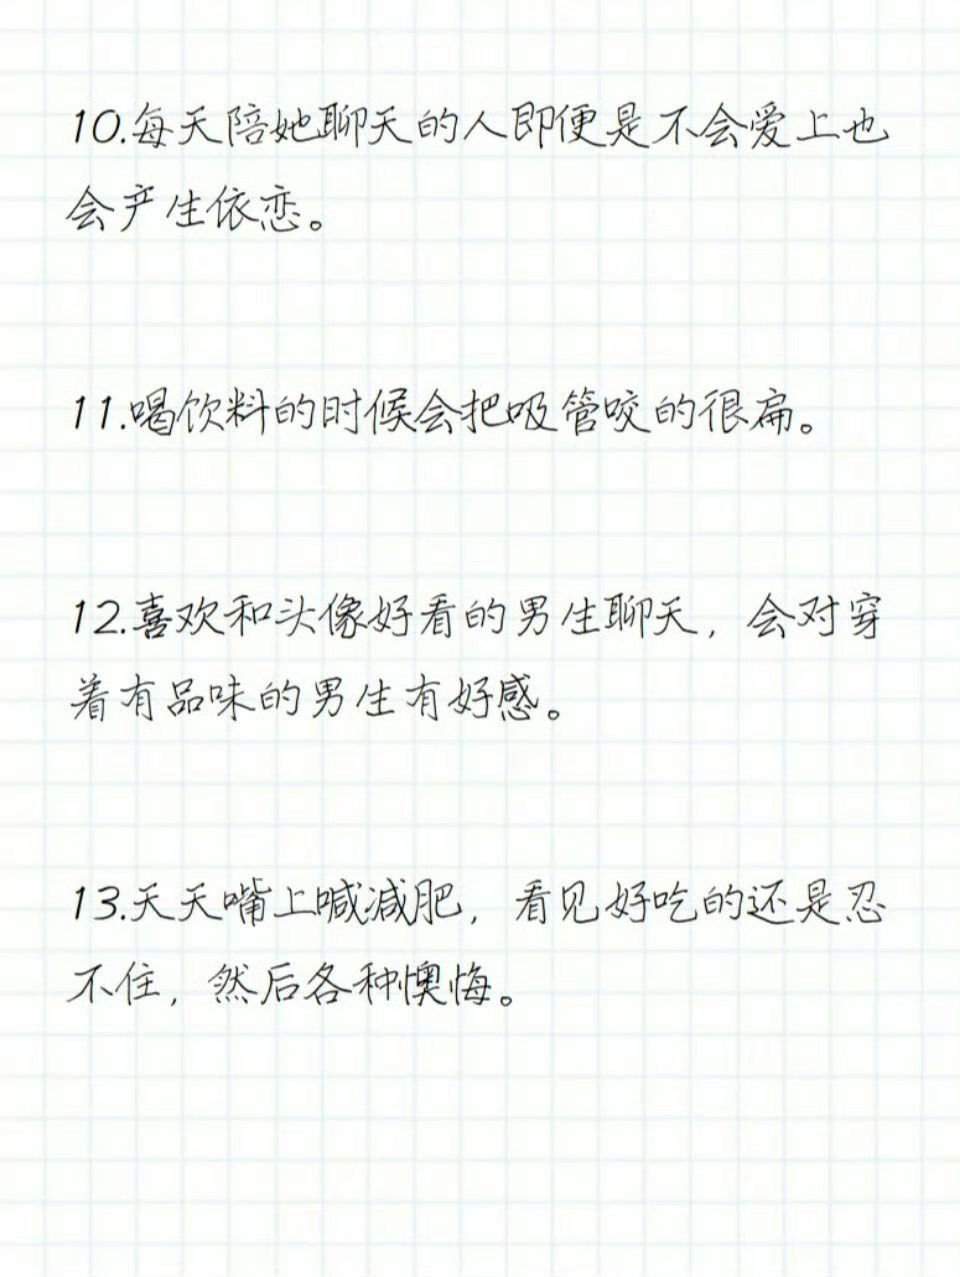 10.每天陪她聊天的人即便是不会爱上也
会产生依恋。
11.喝饮料的时候会把吸管咬的很扁。
12.喜欢和头像好看的男生聊天，会对穿
着有品味的男生有好感。
13.天天嘴上喊减肥，看见好吃的还是忍
不住，然后各种懊悔。